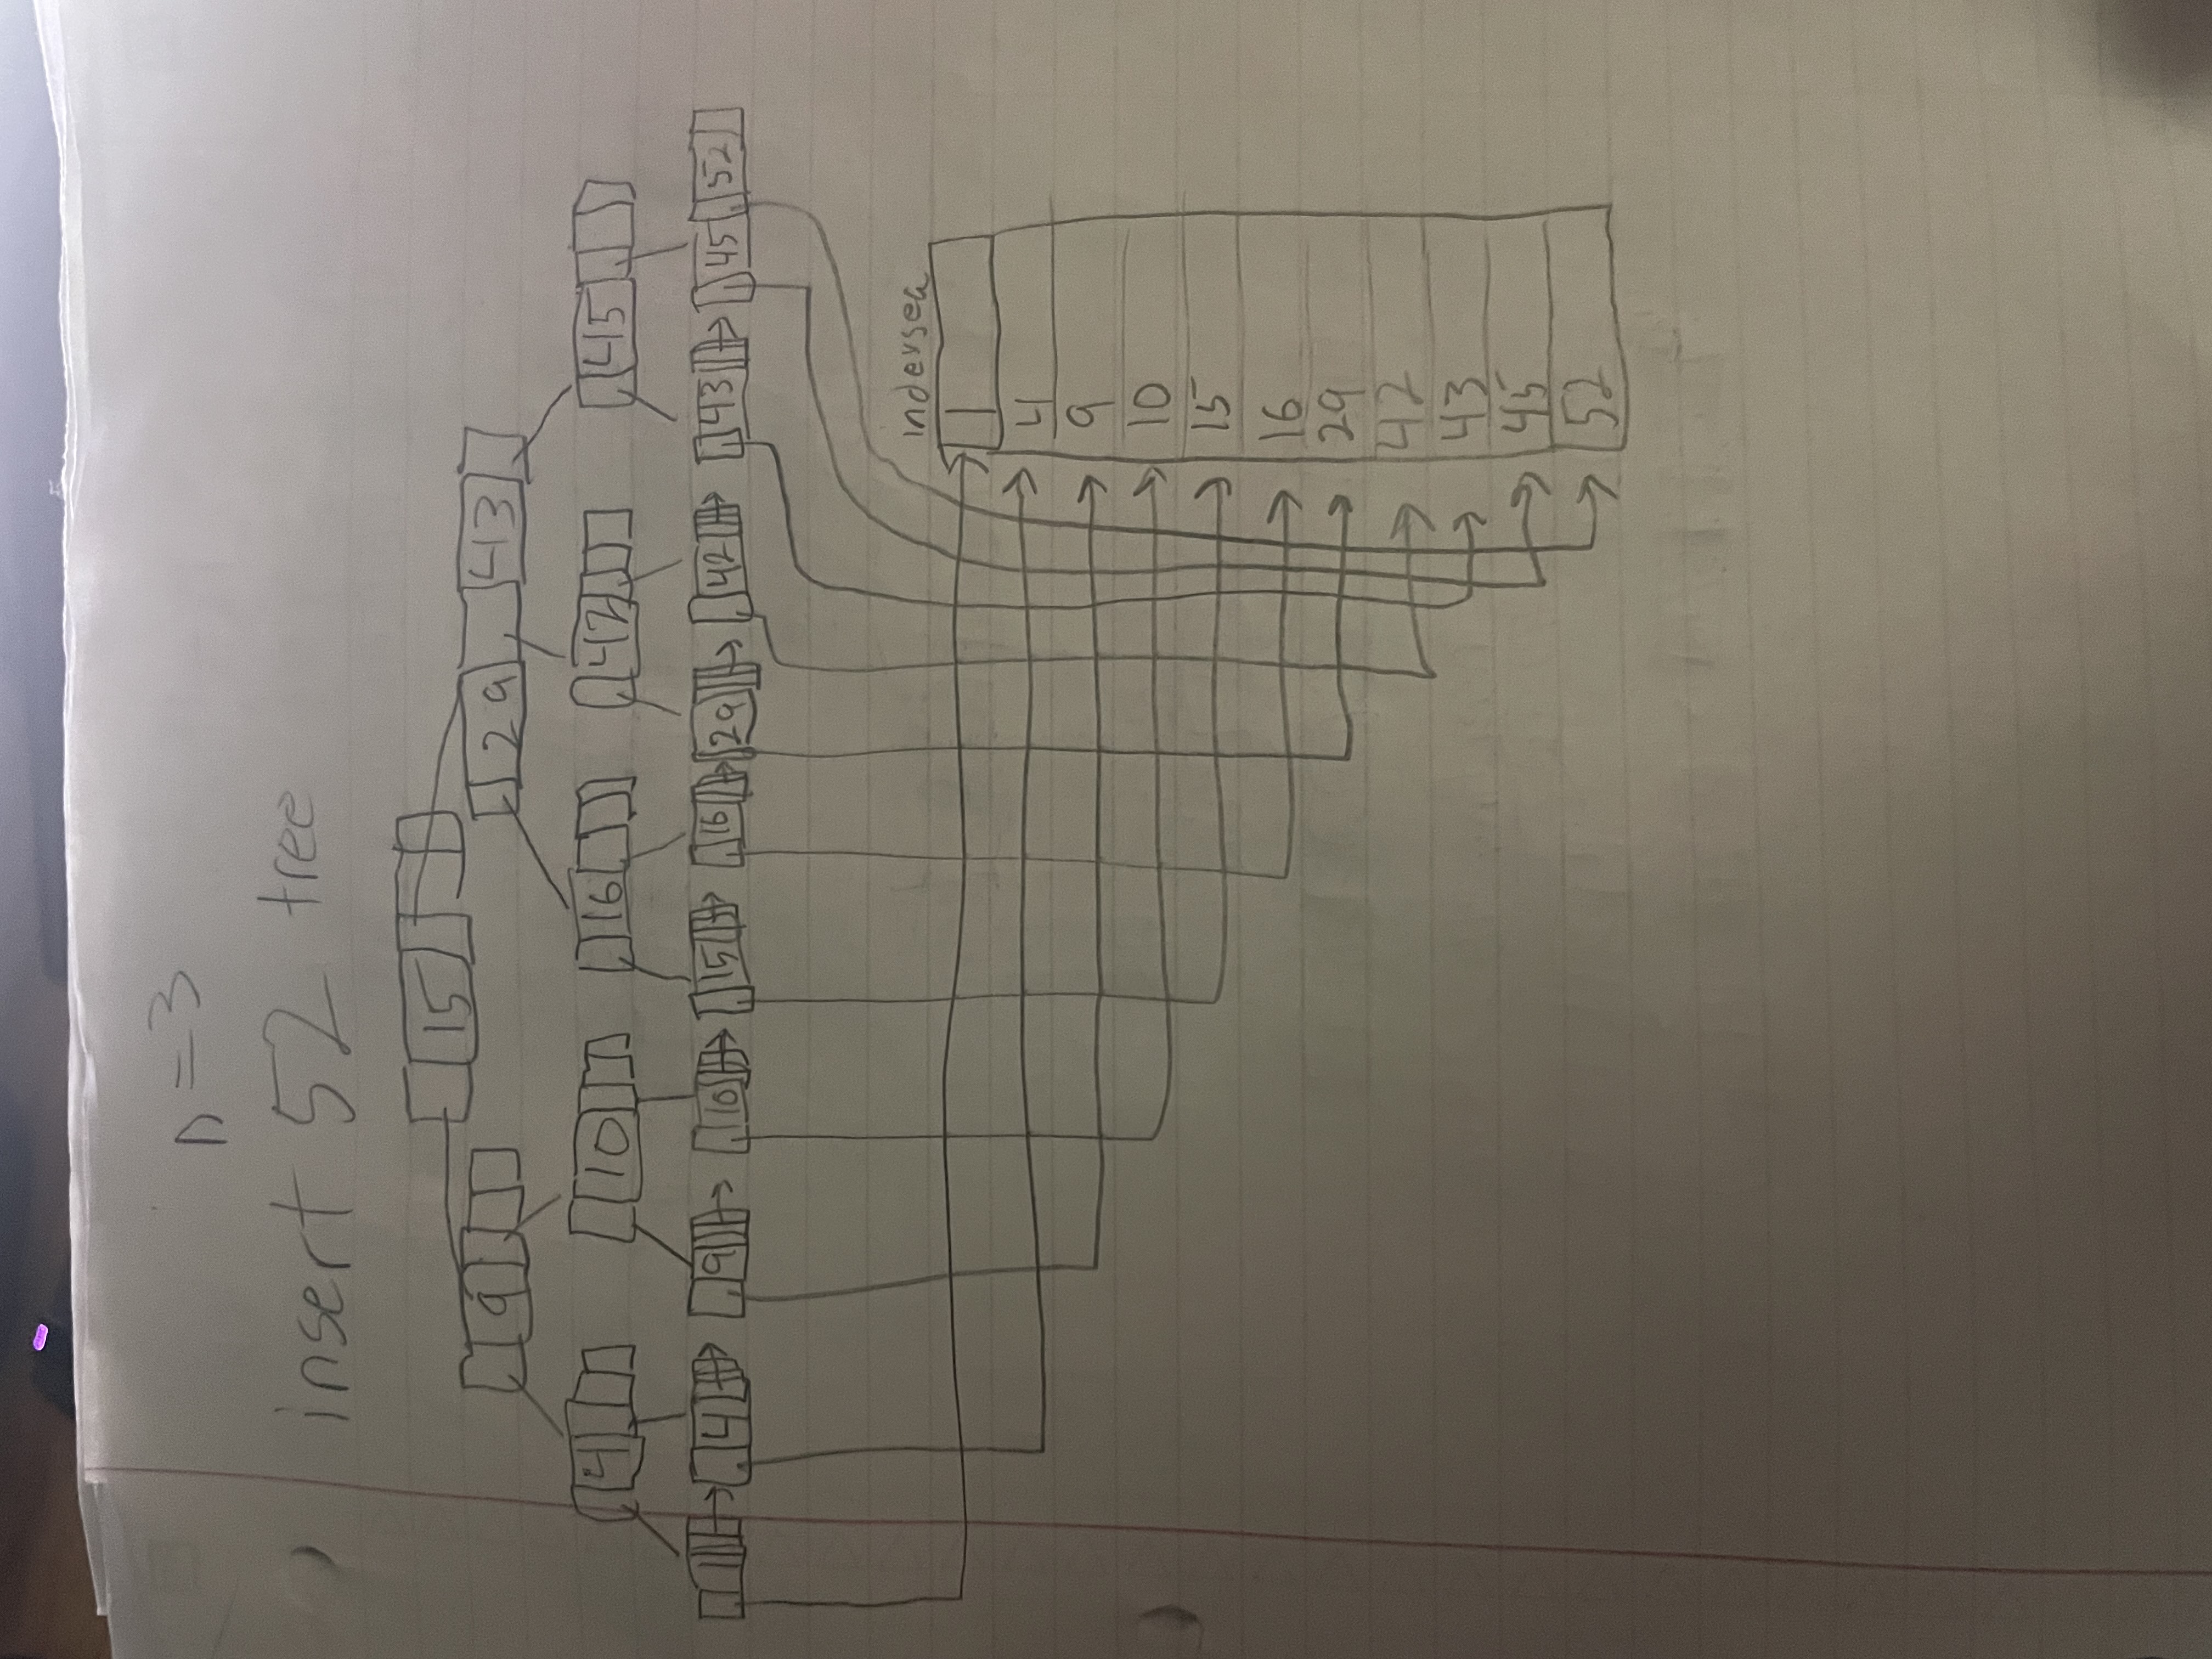 n=3
insert 52 tree
15
9 29 43
4 10 16 42 45
1 4 9 10 15 16 29 42 43 45 52
1
4
9
10
15
16
29
42
43
45
52